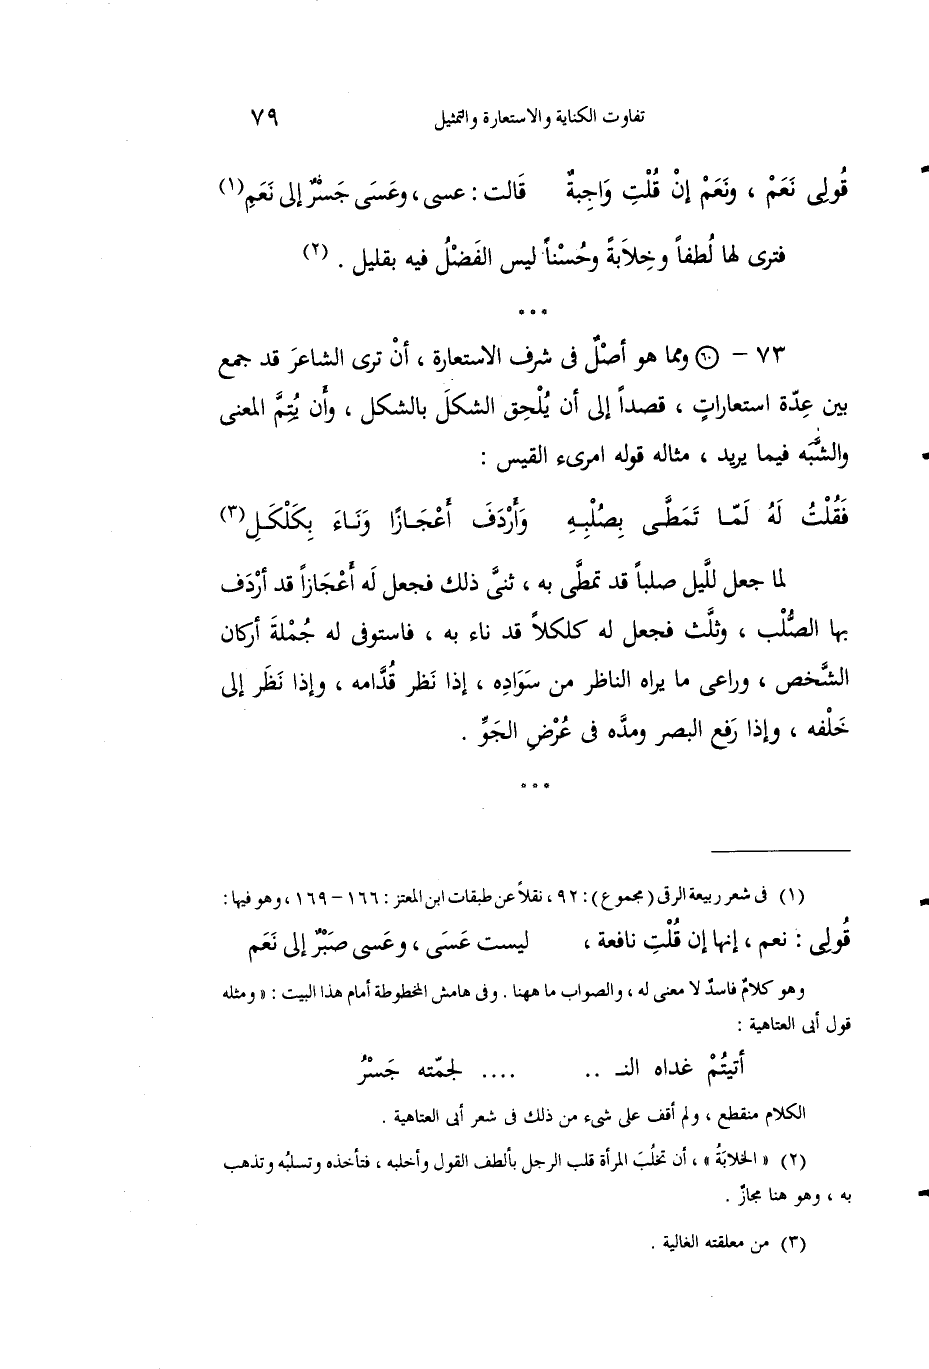 تفاوت الكناية والاستعارة والتمثيل ٧٩
قُولِى نَعَمْ ، ونَعَمْ إنْ قُلْتِ وَاجِبةٌ قَالت : عسى ، وعَسَى جَسْرٌ إلى نَعَمِ (١)
فترى لها لُطفاً وخِلاَبةً وحُسْناً ليس الفَضْلُ فيه بقليل . (٢)
* * *
٧٣ - (٦٠) ومما هو أصْلٌ فى شرف الاستعارة ، أنْ ترى الشاعرَ قد جمع
بين عِدّة استعاراتٍ ، قصداً إلى أن يُلْحِق الشكلَ بالشكل ، وأن يُتِمَّ المعنى
والشَّبَه فيما يريد ، مثاله قوله امرىء القيس :
فَقُلْتُ لَهُ لَمّا تَمَطَّى بِصُلْبِهِ وَأَرْدَفَ أَعْجَازًا وَنَاءَ بِكَلْكَلِ (٣)
لما جعل للَّيل صلباً قد تمطَّى به ، ثنىَّ ذلك فجعل لَه أَعْجَازاً قد أرْدَف
بها الصُّلْب ، وثلَّث فجعل له كلكلاً قد ناء به ، فاستوفى له جُمْلةَ أركان
الشَّخص ، وراعى ما يراه الناظر من سَوَادِه ، إذا نَظر قُدَّامه ، وإذا نَظَر إلى
خَلْفه ، وإذا رَفع البصر ومدَّه فى عُرْضِ الجَوِّ .
* * *
(١) فى شعر ربيعة الرقى (مجموع) : ٩٢ ، نقلاً عن طبقات ابن المعتز : ١٦٦ - ١٦٩ ، وهو فيها :
قُولِى : نعم ، إنها إن قُلْتِ نافعة ، ليست عَسَى ، وعَسى صَبْرٌ إلى نَعَم
وهو كلامٌ فاسدٌ لا معنى له ، والصواب ما ههنا . وفى هامش المخطوطة أمام هذا البيت : « ومثله
قول أبى العتاهية :
أتيتُمْ غداه النـ .. .... لجمّته جَسْرُ
الكلام منقطع ، ولم أقف على شىء من ذلك فى شعر أبى العتاهية .
(٢) « الخلابَةُ » ، أن تخلُبَ المرأة قلب الرجل بألطف القول وأخلبه ، فتأخذه وتسلبُه وتذهب
به ، وهو هنا مجازٌ .
(٣) من معلقته الغالية .